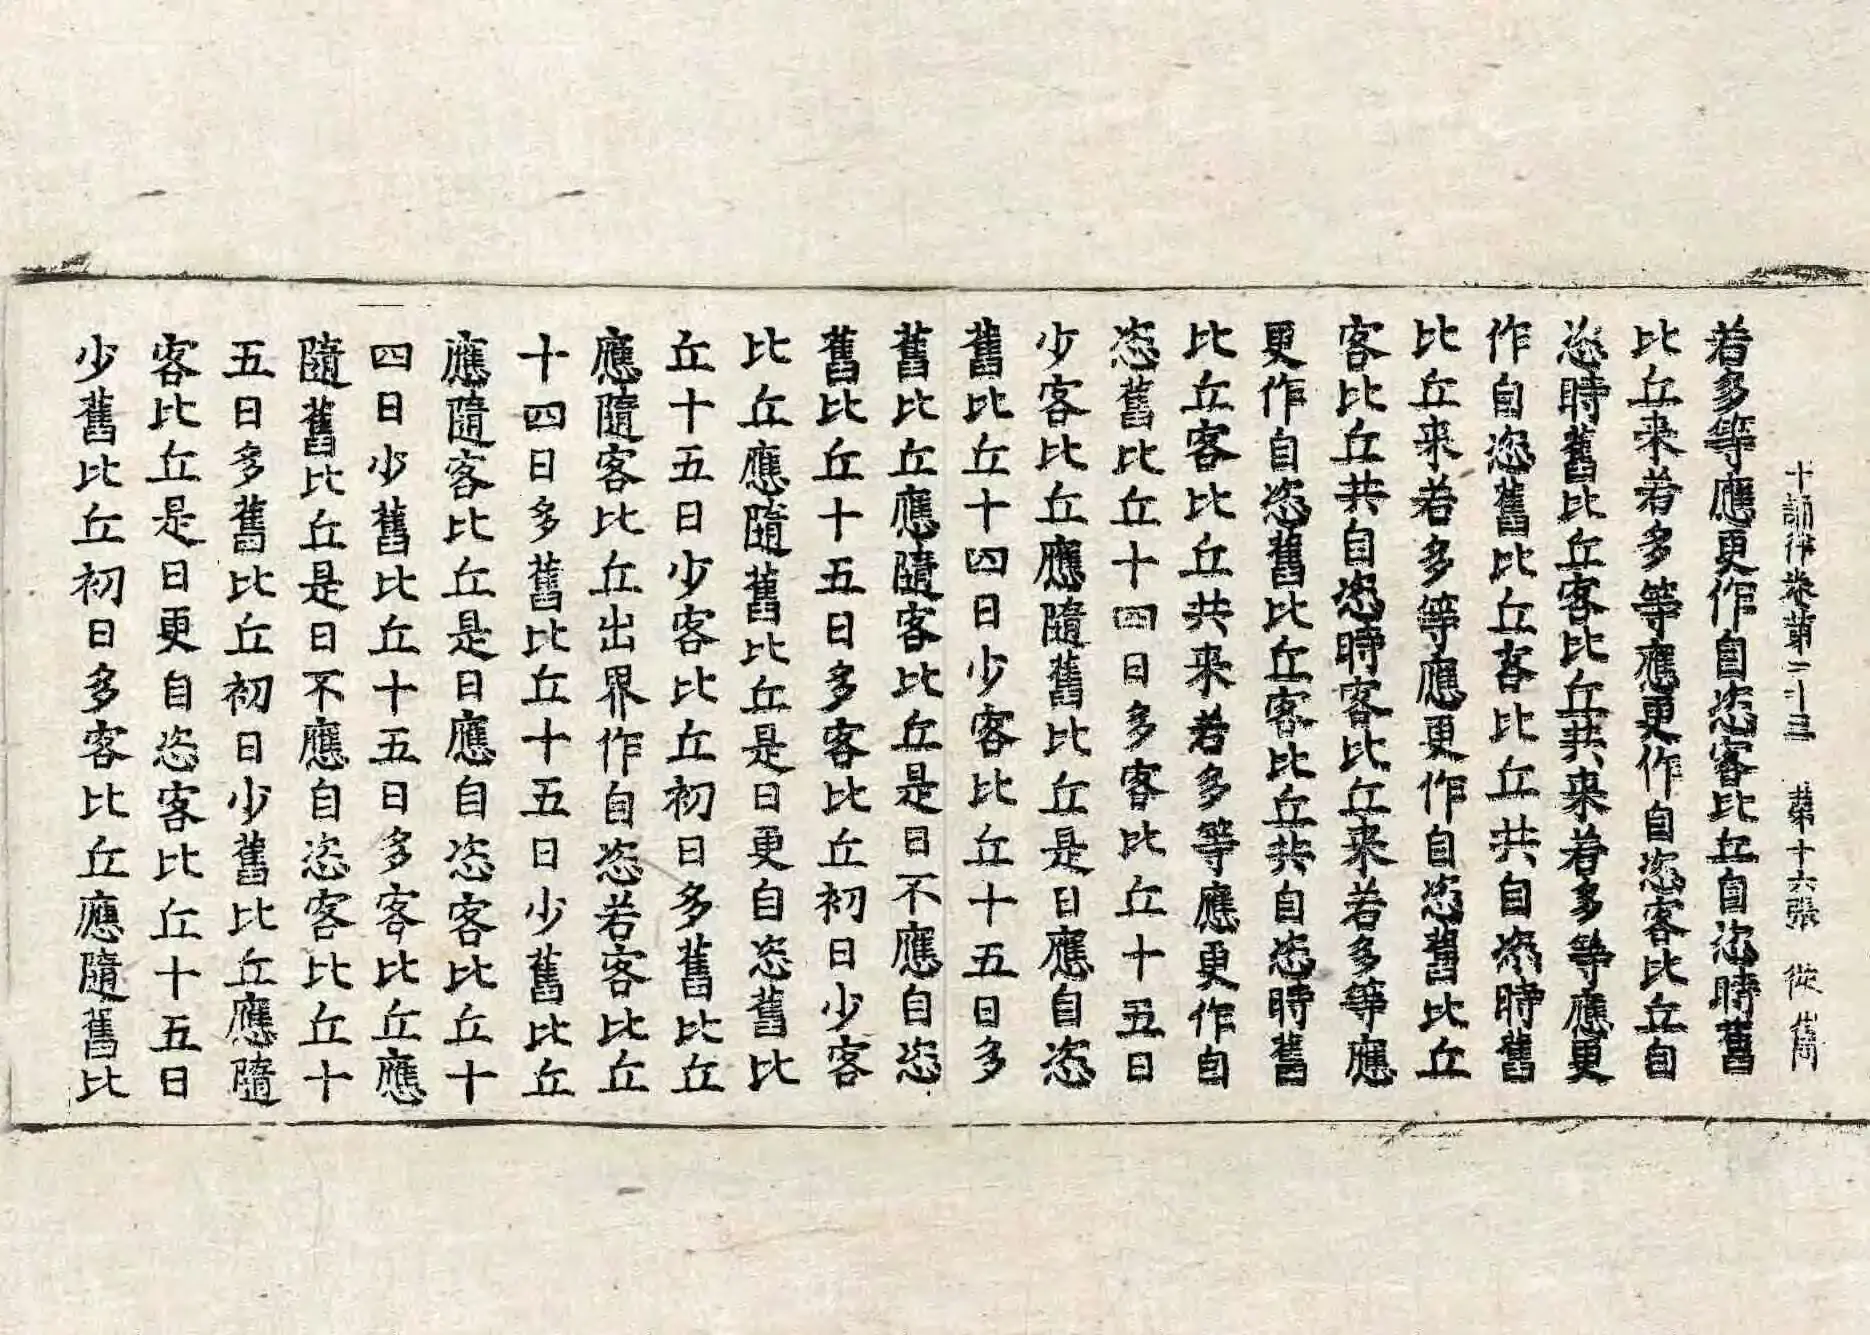 十誦律卷第二十三 第十六張 從雋
若多等應更作自恣客比丘自恣時舊
比丘来若多等應更作自恣客比丘自
恣時舊比丘客比丘共来若多等應更
作自恣舊比丘客比丘共自恣時舊
比丘来若多等應更作自恣舊比丘
客比丘共自恣時客比丘来若多等應
更作自恣舊比丘客比丘共自恣時舊
比丘客比丘共来若多等應更作自
恣舊比丘十四日多客比丘十五日
少客比丘應隨舊比丘是日應自恣
舊比丘十四日少客比丘十五日多
舊比丘應隨客比丘是日不應自恣
舊比丘十五日多客比丘初日少客
比丘應隨舊比丘是日更自恣舊比
丘十五日少客比丘初日多舊比丘
應隨客比丘出界作自恣若客比丘
十四日多舊比丘十五日少舊比丘
應隨客比丘是日應自恣客比丘十
四日少舊比丘十五日多客比丘應
隨舊比丘是日不應自恣客比丘十
五日多舊比丘初日少舊比丘應隨
客比丘是日更自恣客比丘十五日
少舊比丘初日多客比丘應隨舊比